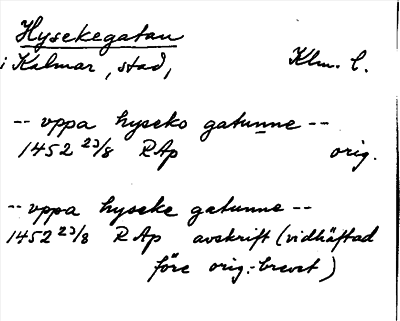 Hysekegatan
i Kalmar, stad, Klm. l.
-- vppa hyseko gatunne --
1452 23/8 RAp orig.
-- vppa hyseke gatunne --
1452 23/8 RAp avskrift (vidhäftad
före orig.-brevet)